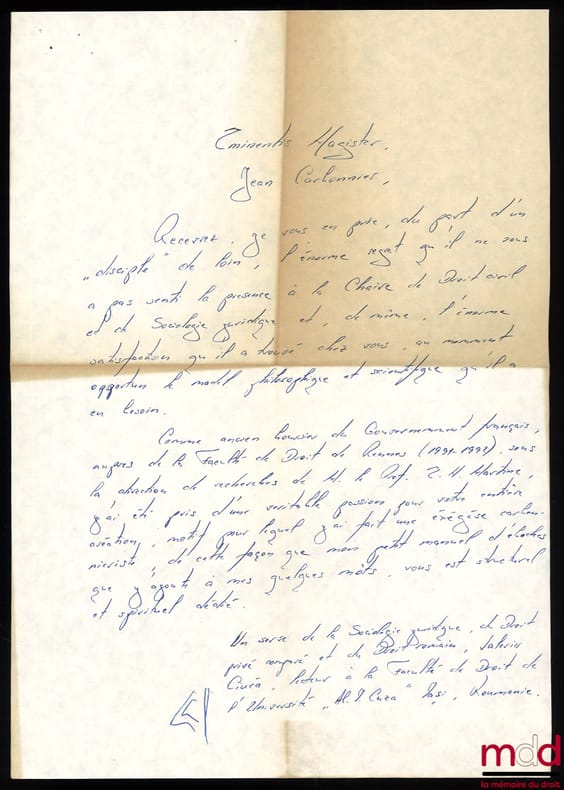 Eminentis Magister,
Jean Carbonnier,
Recevez, je vous en prie, du part d'un
„disciple" de loin, l'énorme regret qu'il ne vous
a pas senti la presence à la Chaire de Droit civil
et de Sociologie juridique et, de même, l'énorme
satisfaction qu'il a trouvé chez vous, au moment
opportun le model philosophique et scientifique qu'il a
en besoin.
Comme ancien boursier du Gouvernement français,
aupres de la Faculté de Droit de Rennes (1991-1992), sous
la direction de recherches de M. le Prof.
j'ai été pris d'une veritable passion pour votre entière
création, motif pour lequel j'ai fait une éxégèse carbon-
nieriste, de cette façon que mon petit manuel
que j'ajoute à mes quelques mots, vous est structurel
et spirituel dédié.
Un serse de la Sociologie juridique, du Droit
privé comparé et du Droit romain, Valeriu
Ciucă, lecteur à la Faculté de Droit de
l'Université „Al. I. Cuza" Iaşi, Roumanie.
mdd
la mémoire du droit